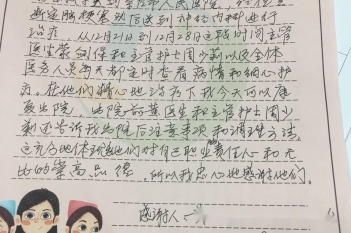 人民医院
断定脑梗塞动后送到神经内科进行
治疗，从12月21日到12月28日这段时间主管
医生蒙剑保和主管护士周少莉以及全体
医务人员每天都定时查看病情和细心护
理。在他们精心地治疗下我今天可以康
复出院，出院前蒙医生和主管护士周少
莉还告诉我出院后注意事项和清维方法，
这充分地体现他们对自己职业责任心和无
比的崇高品德，所以我忠心地感谢他们。
感谢人